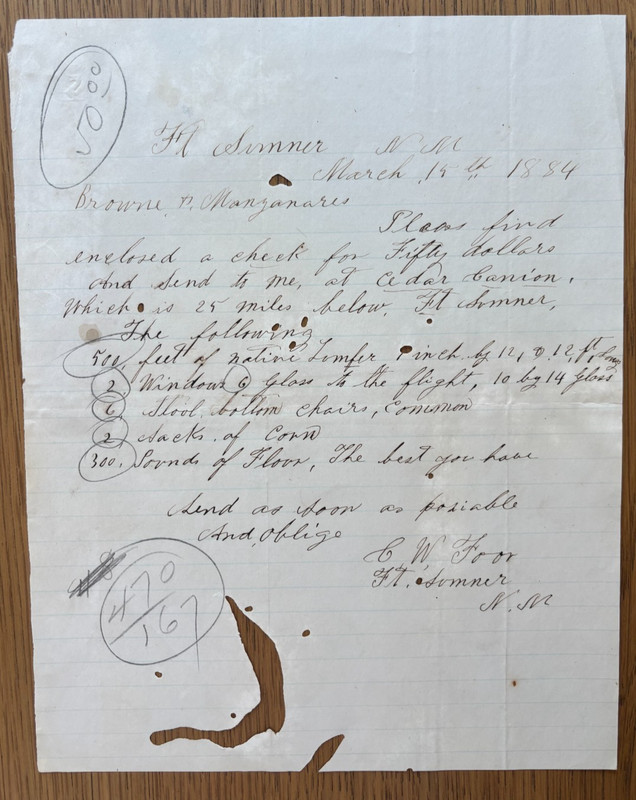 50.00
Ft Sumner N M
March 15th 1884
Browne & Manzanares
Pleas find
enclosed a check for Fifty dollars
And Send to me, at Cedar Canion,
Which is 25 miles below, Ft Sumner,
The following
500, feet of native Lumber 1 inch by 12, & 12, ft long
2 Windows 6 Glass to the flight, 10 by 14 Glass
6 Stool bottom chairs, Common
2 Sacks of Corn
300, Pounds of Flour, The best you have
Send as Soon as posiable
And Oblige
C W Foor
Ft. Sumner
N. M
470
167